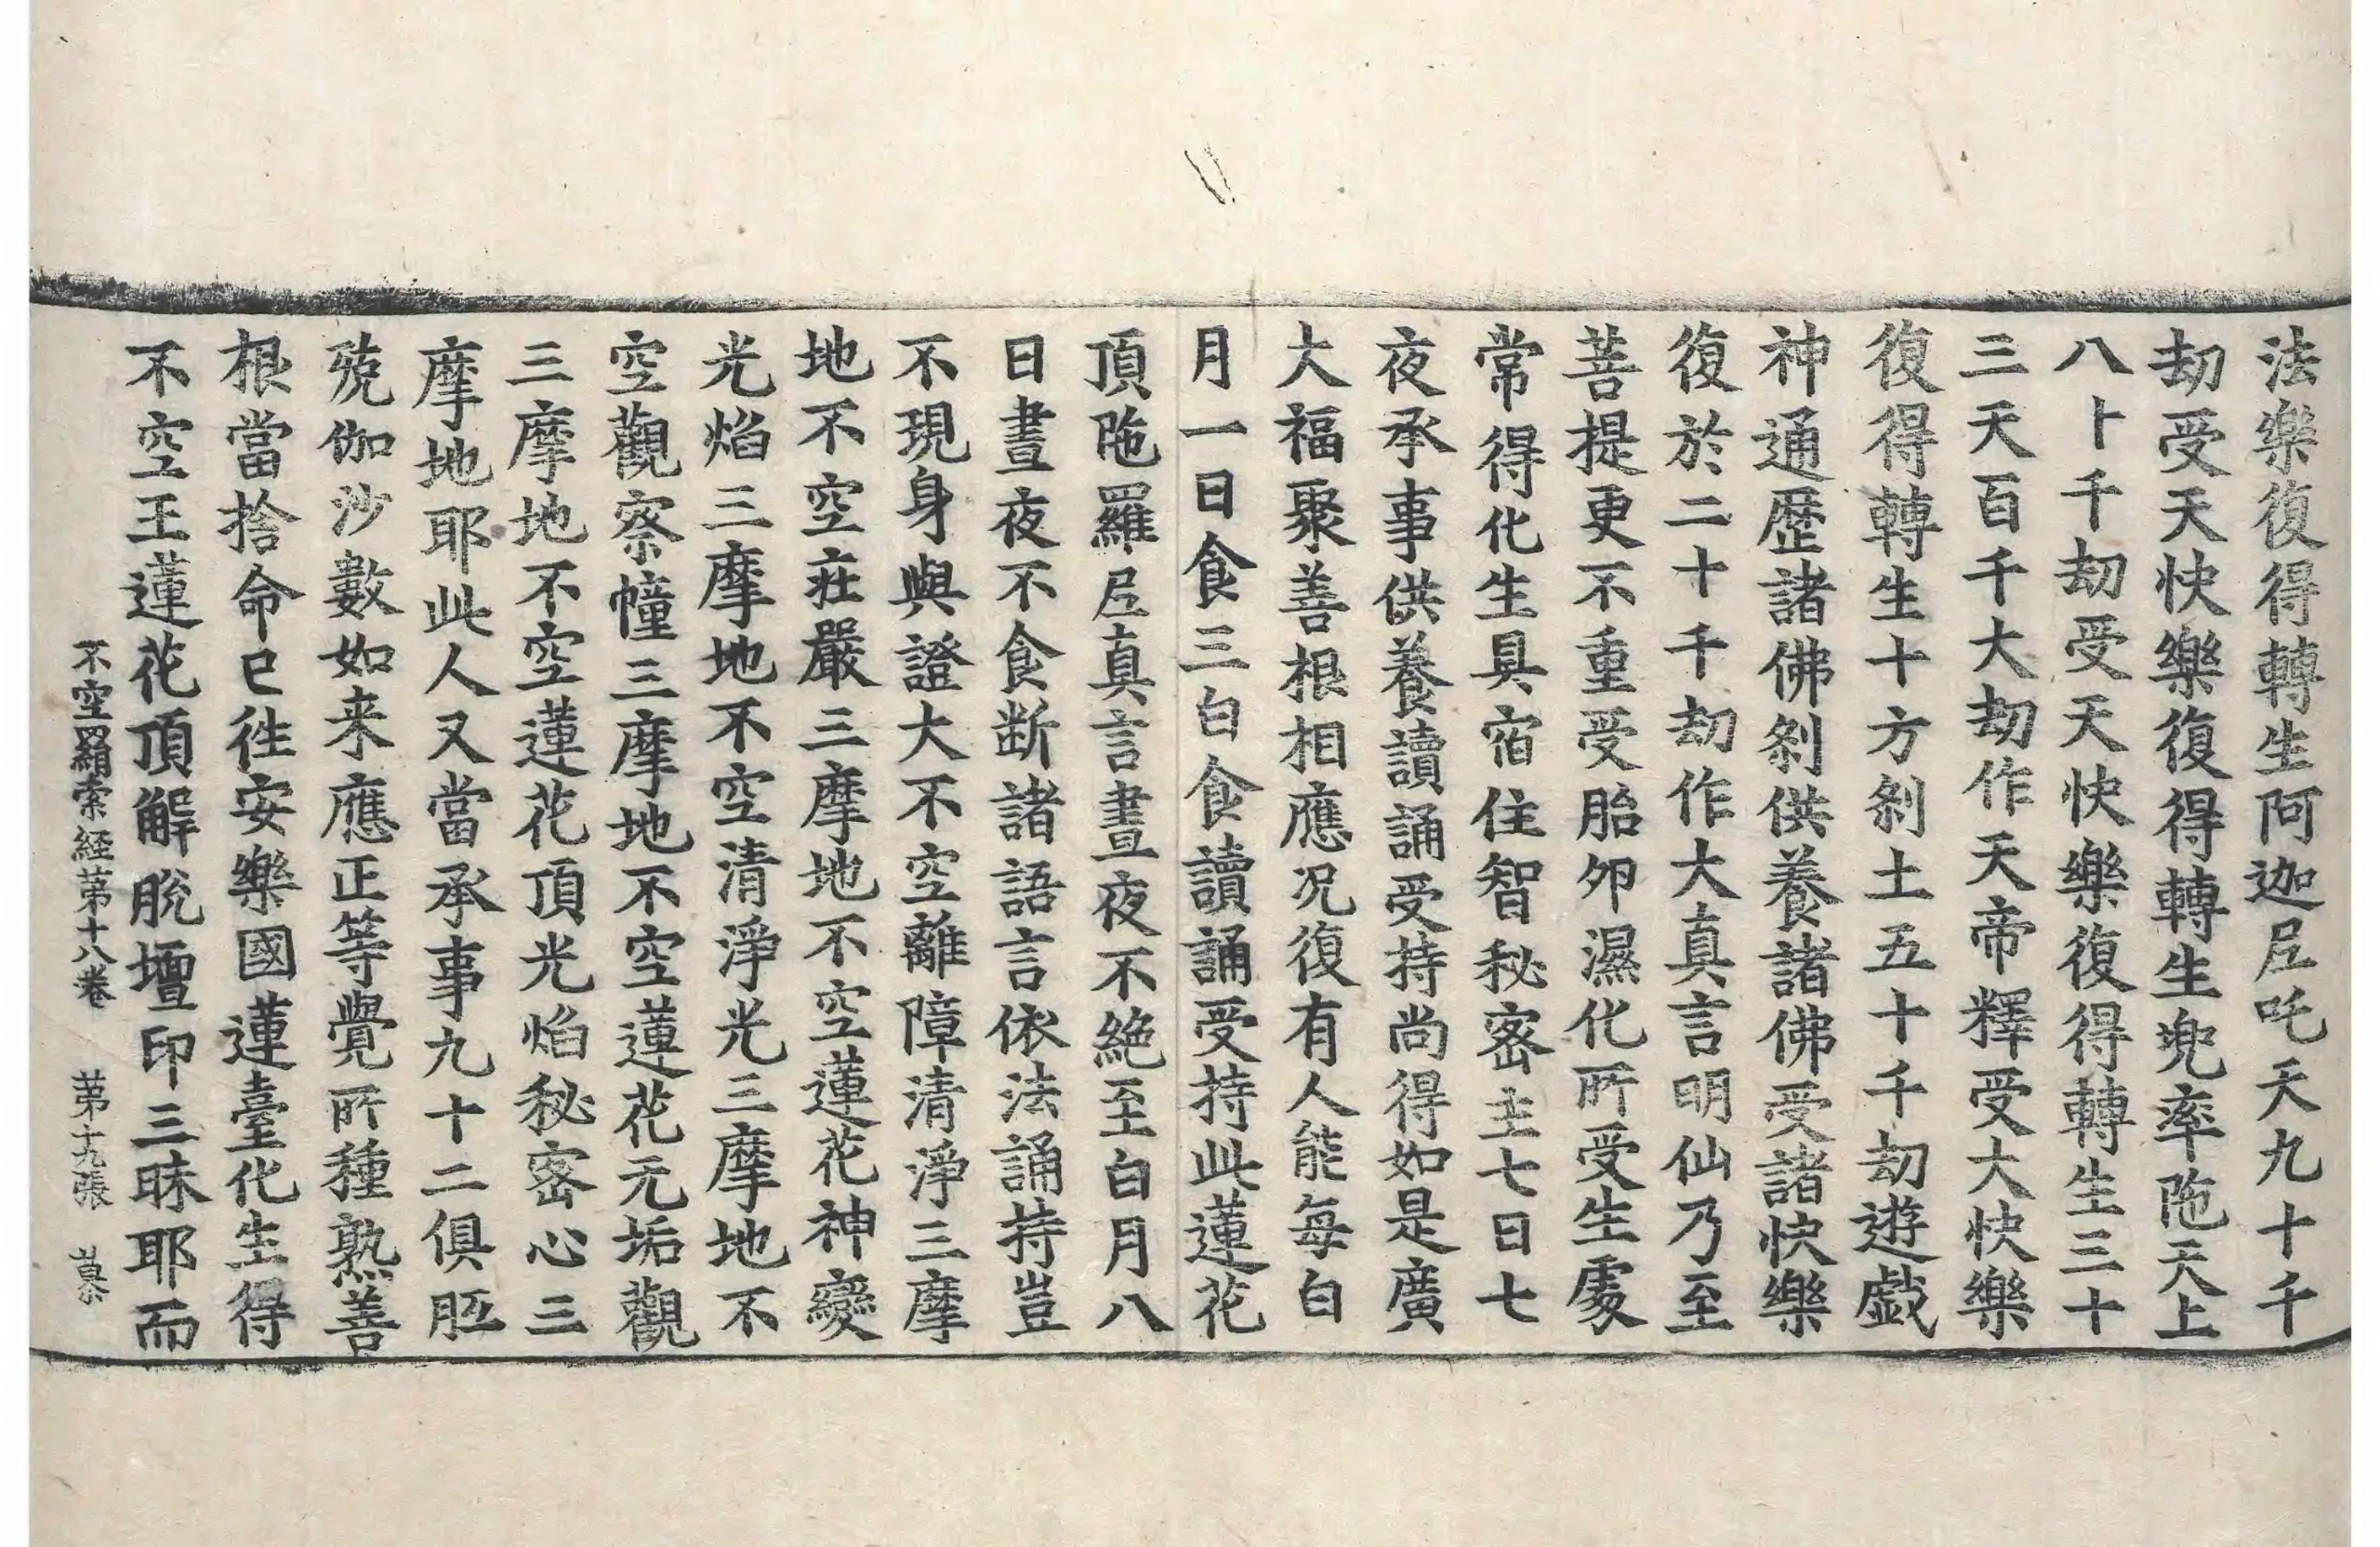 法樂復得轉生阿迦𡰱吒天九十千
劫受天快樂復得轉生兜率陁天上
八十千劫受天快樂復得轉生三十
三天百千大劫作天帝釋受大快樂
復得轉生十方剎土五十千劫遊戯
神通歷諸佛剎供養諸佛受諸快樂
復於二十千劫作大真言明仙乃至
菩提更不重受胎卵濕化所受生處
常得化生具宿住智秘密主七日七
夜承事供養讀誦受持尚得如是廣
大福聚善根相應况復有人能每白
月一日食三白食讀誦受持此蓮花
頂陁羅𡰱真言晝夜不絶至白月八
日晝夜不食断諸語言依法誦持豈
不現身與證大不空離障清淨三摩
地不空莊嚴三摩地不空蓮花神變
光焰三摩地不空清淨光三摩地不
空觀察幢三摩地不空蓮花无垢觀
三摩地不空蓮花頂光焰秘密心三
摩地耶此人又當承事九十二俱胝
殑伽沙數如来應正等覺所種熟善
根當捨命已徃安樂國蓮臺化生得
不空王蓮花頂解脫壇印三昧耶而
不空羂索経苐十八卷 苐十九張 慕